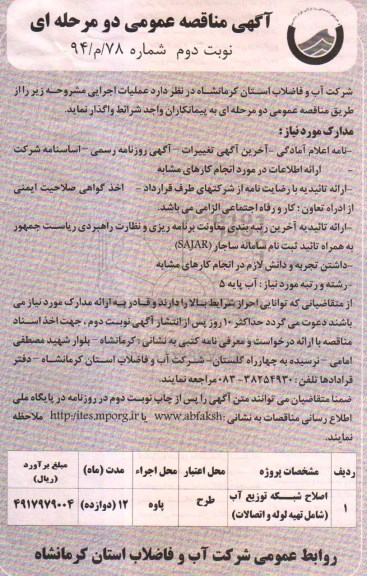 آگهی مناقصه عمومی دو مرحله ای
نوبت دوم شماره ۷۸/م/۹۴
شرکت آب و فاضلاب استان کرمانشاه در نظر دارد عملیات اجرایی مشروحه زیر را از
طریق مناقصه عمومی دو مرحله ای به پیمانکاران واجد شرائط واگذار نماید.
مدارک مورد نیاز :
-نامه اعلام آمادگی -آخرین آگهی تغییرات -آگهی روزنامه رسمی -اساسنامه شرکت
- ارائه اطلاعات در مورد انجام کارهای مشابه
-ارائه تائیدیه با رضایت نامه از شرکتهای طرف قرارداد - اخذ گواهی صلاحیت ایمنی
از ادراه تعاون : کار و رفاه اجتماعی الزامی می باشد.
-ارائه تائیدیه آخرین رتبه بندی معاونت برنامه ریزی و نظارت راهبردی ریاست جمهور
به همراه تائید ثبت نام سامانه ساجار (SAJAR)
-داشتن تجربه و دانش لازم در انجام کارهای مشابه
-رشته و رتبه مورد نیاز : آب پایه ۵
از متقاضیانی که توانایی احراز شرایط بالا را دارند و قادر به ارائه مدارک مورد نیاز می
باشند دعوت می گردد حداکثر ۱۰ روز پس از انتشار آگهی نوبت دوم ، جهت اخذ اسناد
مناقصه با ارائه درخواست و معرفی نامه کتبی به نشانی : کرمانشاه - بلوار شهید مصطفی
امامی - نرسیده به چهارراه گلستان- شرکت آب و فاضلاب استان کرمانشاه - دفتر
قرادادها تلفن : ۳۸۲۵۴۹۳۰-۰۸۳ مراجعه نمایند.
ضمنا متقاضیان می توانند متن آگهی را پس از چاپ نوبت دوم در روزنامه در پایگاه ملی
اطلاع رسانی مناقصات به نشانی : www.abfaksh یا http:/ites.mporg.ir ملاحظه
نمایند.
ردیف مشخصات پروژه محل اعتبار محل اجراء مدت (ماه) مبلغ برآورد (ریال)
۱ اصلاح شبکه توزیع آب (شامل تهیه لوله و اتصالات) طرح پاوه ۱۲ (دوازده) ۴۹۱۷۹۷۹۰۰۴
روابط عمومی شرکت آب و فاضلاب استان کرمانشاه